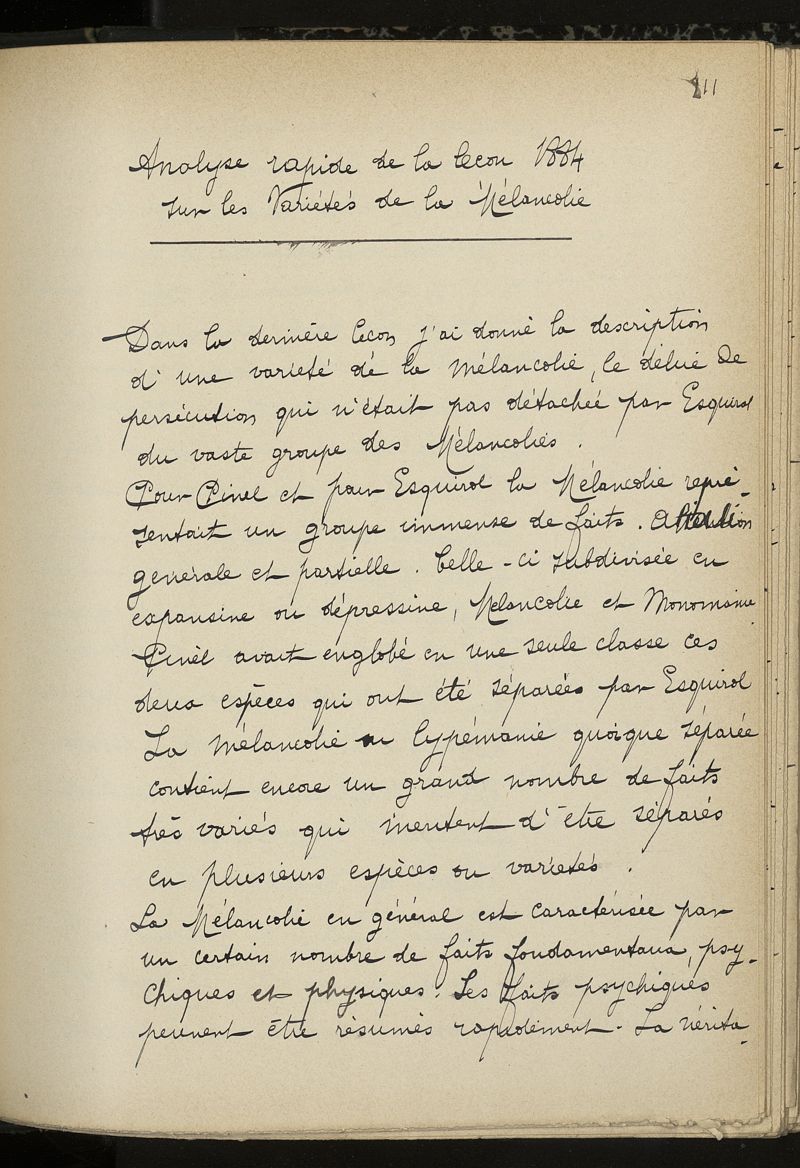 11
Analyse rapide de la leçon 1884
sur les Variétés de la Mélancolie
Dans la dernière leçon j'ai donné la description
d'une varieté de la Mélancolie, le délire de
persécution qui n'était pas détacheé par Esquirol
du vaste groupe des Mélancolies.
Pour Pinel et pour Esquirol la Mélancolie repré-
sentait un groupe immense de faits.
generale et partielle. Celle-ci subdivisée en
expansive ou dépressive, Mélancolie et Monomanie
Pinel avait englobé en une seule classe ces
deux espèces qui ont été séparées par Esquirol
La Mélancolie ou lypémanie quoique séparée
contient encore un grand nombre de faits
très variés qui méritent d'être séparés
en plusieurs espèces ou varietés.
La Mélancolie en général est caractérisée par
un certain nombre de faits fondamentaux, psy-
chiques et physiques. Les faits psychiques
peuvent être résumés rapidement. La vérita-